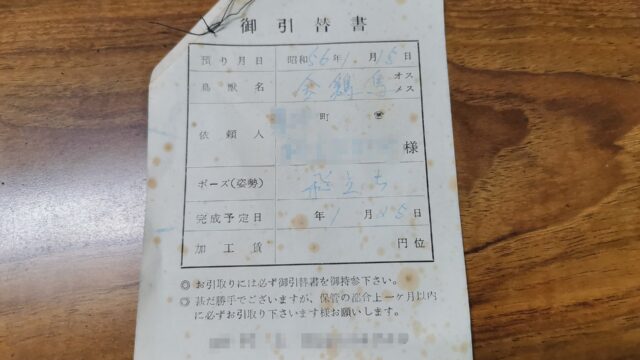 御引替書
預り月日 昭和56年1月15日
鳥獣名 金鶏鳥 オス
メス
町 ☎
依頼人
様
ポーズ(姿勢) 飛立ち
完成予定日 年1月 5日
加工賃 円位
◎ お引取りには必ず御引替書を御持参下さい。
◎ 甚だ勝手でございますが、保管の都合上一ヶ月以内
に必ずお引取り下さいます様お願いします。